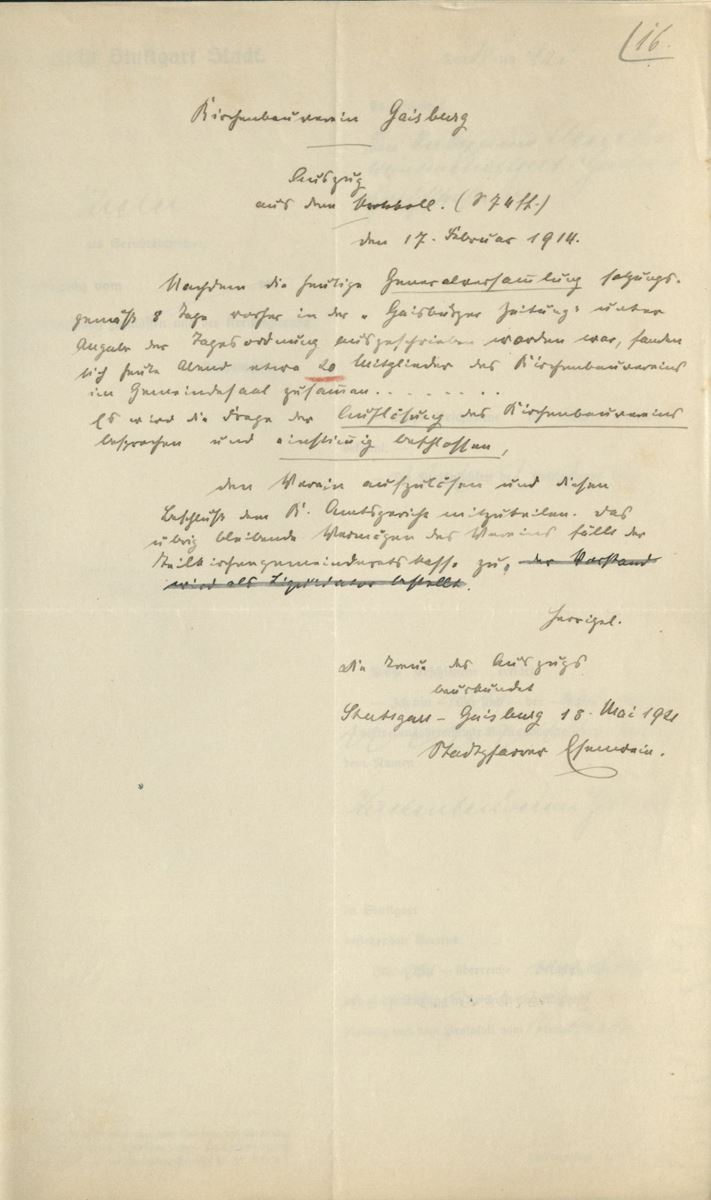 (16.
Kirchenbauverein Gaisburg
Auszug
aus dem Protokoll. (S 74 ff.)
den 17. Februar 1914.
Nachdem die heutige Generalversammlung satzungs-
gemäß 8 Tage vorher in der „Gaisburger Zeitung" unter
Angabe der Tagesordnung ausgeschrieben worden war, fanden
sich heute Abend etwa 20 Mitglieder des Kirchenbauvereins
im Gemeindesaal zusammen. . . . . . . .
Es wird die Frage der Auflösung des Kirchenbauvereins
besprochen und einstimmig beschlossen,
den Verein aufzulösen und diesen
Beschluß dem K. Amtsgericht mitzuteilen. Das
übrig bleibende Vermögen des Vereins fällt der
Teilkirchengemeinderatskasse zu, der Vorstand
wird als Liquidator bestellt.
Herrigel.
Die Treue des Auszugs
beurkundet
Stuttgart-Gaisburg 18. Mai 1921
Stadtpfarrer Esenwein.